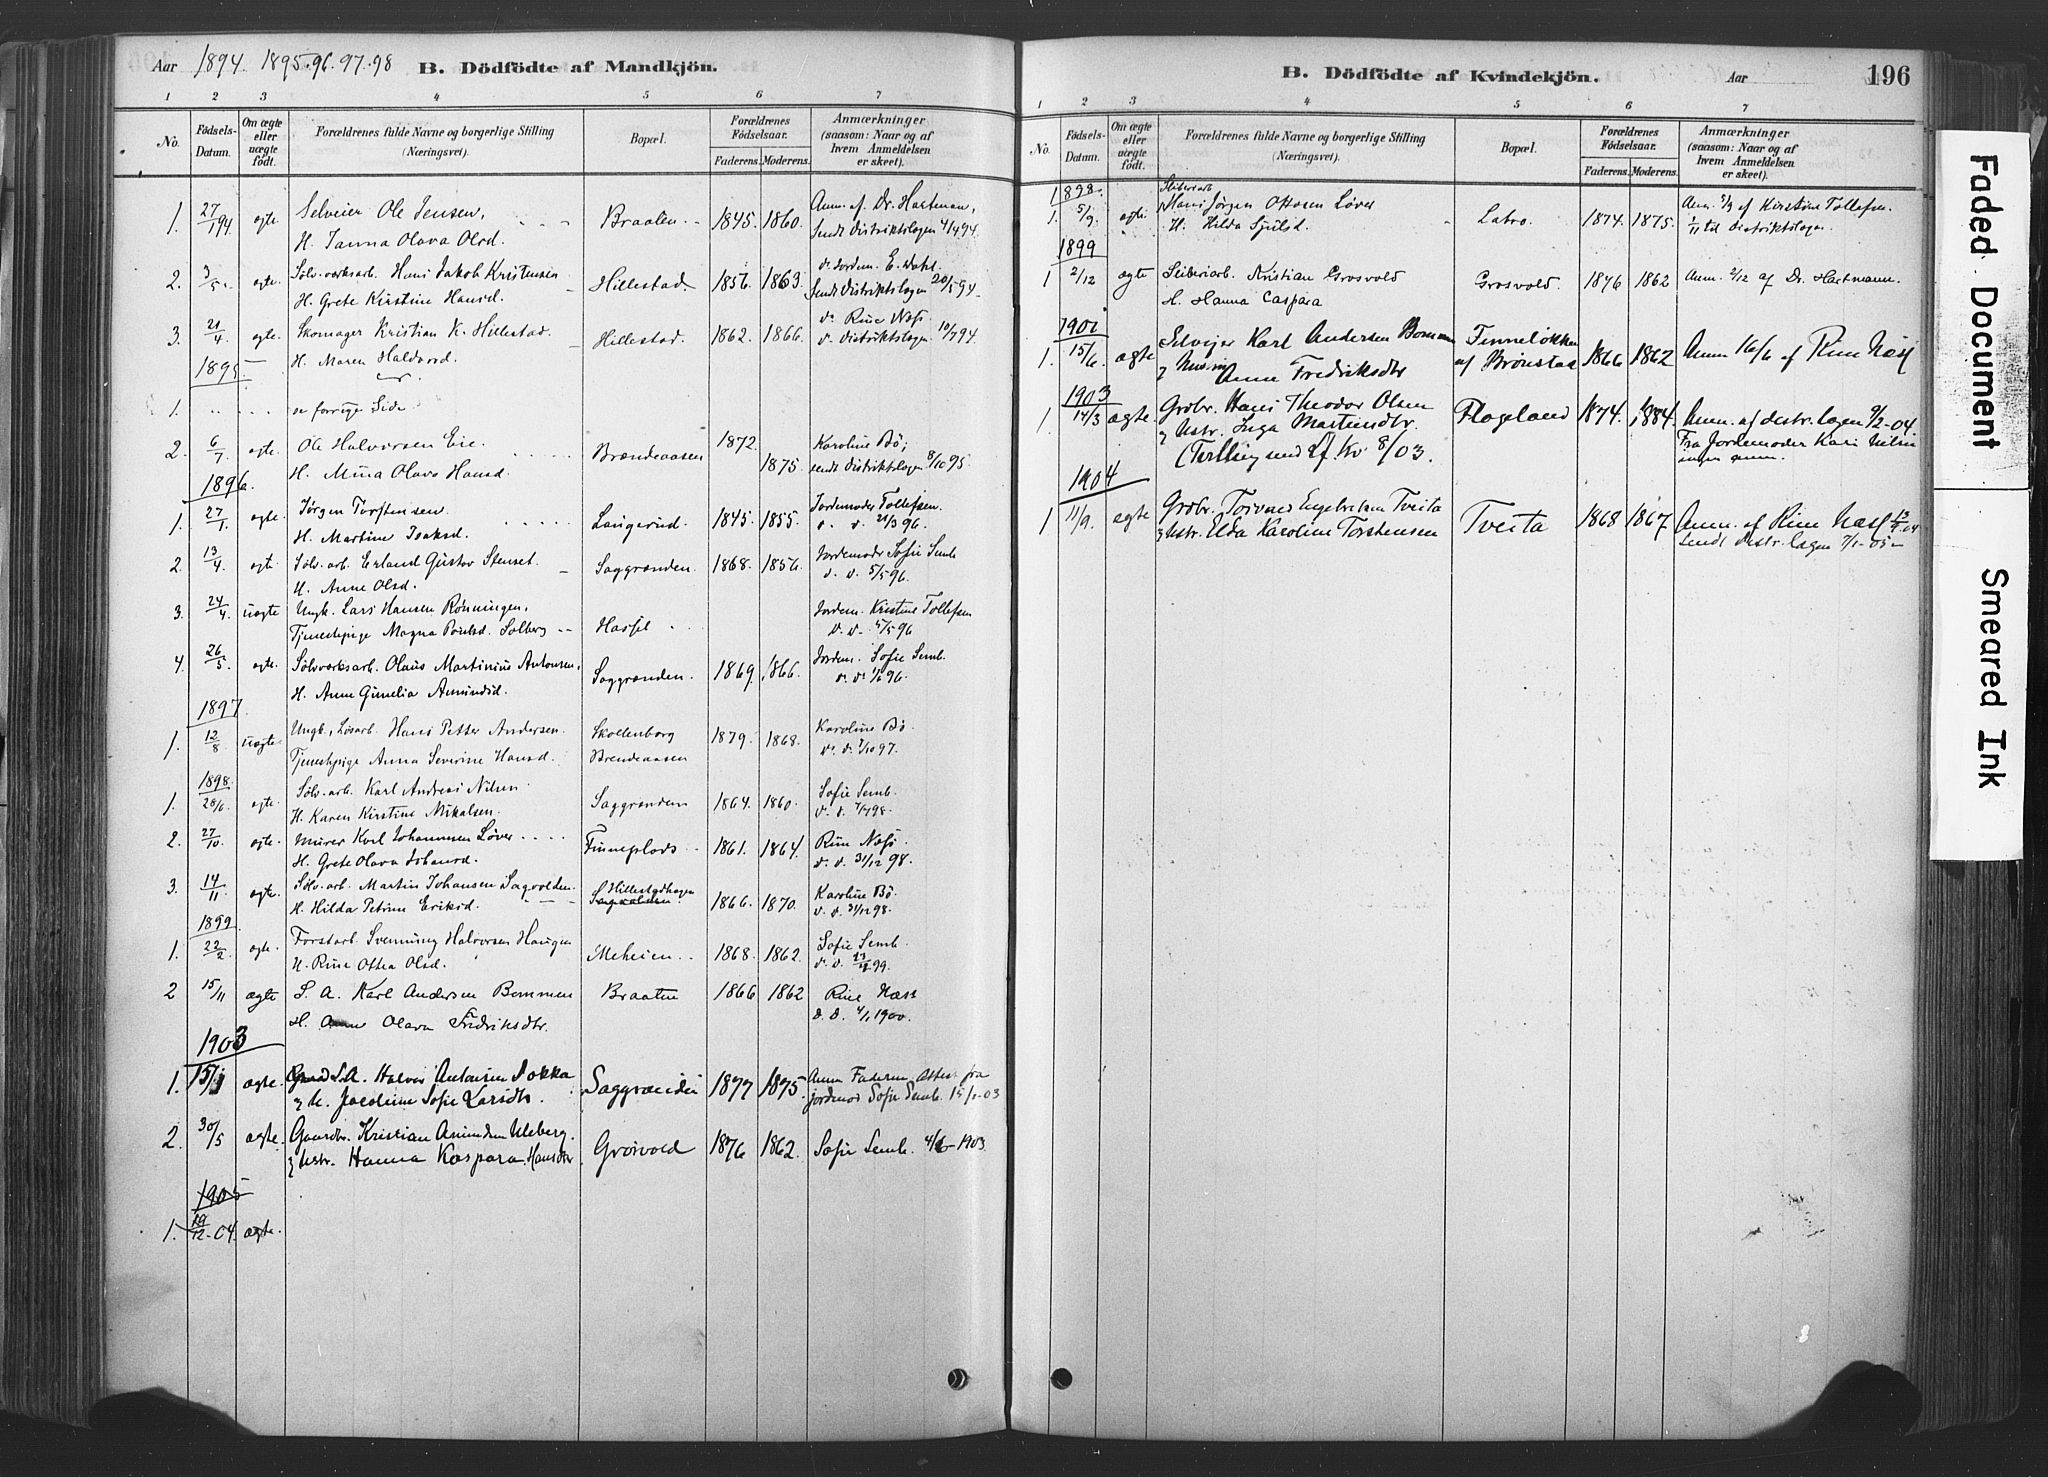 Aar 1894. 1895. 96. 97. 98 B. Dödfödte af Mandkjön.
1 2 3 4 5 6 7
No. Födsels-Datum. Om ægte eller uægte födt. Forældrenes fulde Navne og borgerlige Stilling (Næringsvei). Bopæl. Forældrenes Födselsaar. Faderens. Moderens. Anmærkninger (saasom: Naar og af hvem Anmeldelsen er skeet).
1. 27/1 94 egte Selveier Ole Jensen, Braaten 1845 1860. Anm. af Dr. Hartman,
H. Janna Olava Olsd. Sendt Distriktslægen 4/4 94.
2. 3/5 egte. Sølvverksarb. Hans Jakob Kristensen Hillestad. 1856. 1863. d. Jordem. E. Dahl
H. Grete Kirstine Hansd. Sendt Distriktslægen 20/5 94
3. 21/4 egte. Skomager Kristian K. Hillestad. Hillestad. 1862. 1866. d. Rine Næss
H. Maren Halvord. d. Distriktslægen 10/7 94
1895
1. se forrige Side
2. 6/7 egte. Ole Halvorsen Eie. Brændeaasen 1872 1875. Karoline Bö;
H. Mina Olava Hansd. sendt Distriktslægen 8/10 95
1896.
1. 27/1. egte. Jørgen Torstensen Langerud. 1845. 1855. Jordemoder Tollefsen.
H. Martine Isaksd. d. d. 21/3 96.
2. 13/4. egte. Sølv. arb. Erland Gustav Stenset. Saggrenden. 1868. 1856. Jordemoder Sofie Semb
H. Anne Olsd. d. d. 5/5 96.
3. 24/4. uegte Ungk. Lars Hansen Rønningen, Jordem. Kristine Tollefsen
Tjenestepige Magna Paulsd. Solberg Hassel d. d. 4/5 96
4. 26/5. egte. Sølvverksarb. Olaus Martinius Antonsen, Saggrenden. 1869. 1866. Jordem. Sofie Semb.
H. Anne Gunelia Amundsd. d. d. 1/6 96.
1897.
1. 12/8 uegte Ungk., Løsarb. Hans Petter Andersen. Skollenborg 1879. 1868. Karoline Bö.
Tjenestepige Anna Severine Hansd. Brendeaasen d. d. 7/10 97.
1898.
1. 28/6. egte. Sølv. arb. Karl Andreas Nilsen. Saggrenden 1864. 1860. Sofie Semb.
H. Karen Kirstine Mikalsen. d. d. 7/7 98.
2. 27/10 egte. Murer Karl Johannesen Løver Finneplads 1861. 1864. Rine Næss
H. Grete Olava Johansd. d. d. 31/12 98.
3. 14/11 egte. Sølv. arb. Martin Johansen Sagvolden. Hillestadhagen 1866. 1870. Karoline Bö
H. Hilda Petrine Eriksd. Sagvolden d. d. 31/12 98.
1899.
1. 22/2 egte. Forstarb. Svenning Halvorsen Haugen Meheien 1868. 1862. Sofie Semb.
H. Rine Othea Olsd. d. d. 99.
2 15/11 ægte S. A. Karl Andersen Bommen Braaten 1866 1862 Rine Næss
H. Anne Olava Fredriksdtr. d. d. 4/1 1900.
1903
1. 15/1 ægte. S. A. Halvor Antonsen Dokka Saggrenden 1877 1875. Anm Faderen Attest fra
& H. Jacobine Sofie Larsdtr. jordmod Sofie Semb. 15/1-03
2. 30/5 ægte. Gaardbr. Kristian Amundsen Uleberg. Grosvold 1876 1862. Sofie Semb. 4/6-1903
& Hustr. Hanna Kaspara Hansdtr
1905
1. 19/12-04. ægte.
B. Dödfödte af Kvindekjön. Aar 196
1 2 3 4 5 6 7
No. Födsels-Datum. Om ægte eller uægte födt. Forældrenes fulde Navne og borgerlige Stilling (Næringsvei). Bopæl. Forældrenes Födselsaar. Faderens. Moderens. Anmærkninger (saasom: Naar og af hvem Anmeldelsen er skeet).
1898. Sliberiarb
1. 5/9. egte. Hans Jörgen Ottosen Löver Labro. 1874. 1875. Anm. af Kirstine Tollefsen.
H. Hilda Sjulsd. 1/11 til Distriktslægen.
1899
1 2/12 ægte Sliberiarb. Kristian Grosvold Grosvold. 1876 1862 Anm. 2/12 af Dr. Hartmann.
H. Hanna Caspara
1901
1. 15/6. ægte Selvejer Karl Andersen Bommen Finneløkken 1866 1862 Anm 16/6 af Rine Næss
& Anne Fredriksdtr af Brönstad
1903
1. 14/3 ægte Grdbr. Hans Theodor Olsen Flogeland 1874. 1884. Anm. af distr.lægen 9/2-04
& Hstr. Inga Martinsdtr. Fra Jordemoder Kari
(Tvilling med lf. Kv 8/03. ingen anm.
1904
1 11/9. ægte Grdbr. Torvald Engebretsen Tveita Tveita 1868 1867 Anm. af Rine Næss 13/9-04
& Hstr. Elda Karoline Torstensen sendt distr.lægen 7/1-05
Faded Document
Smeared Ink